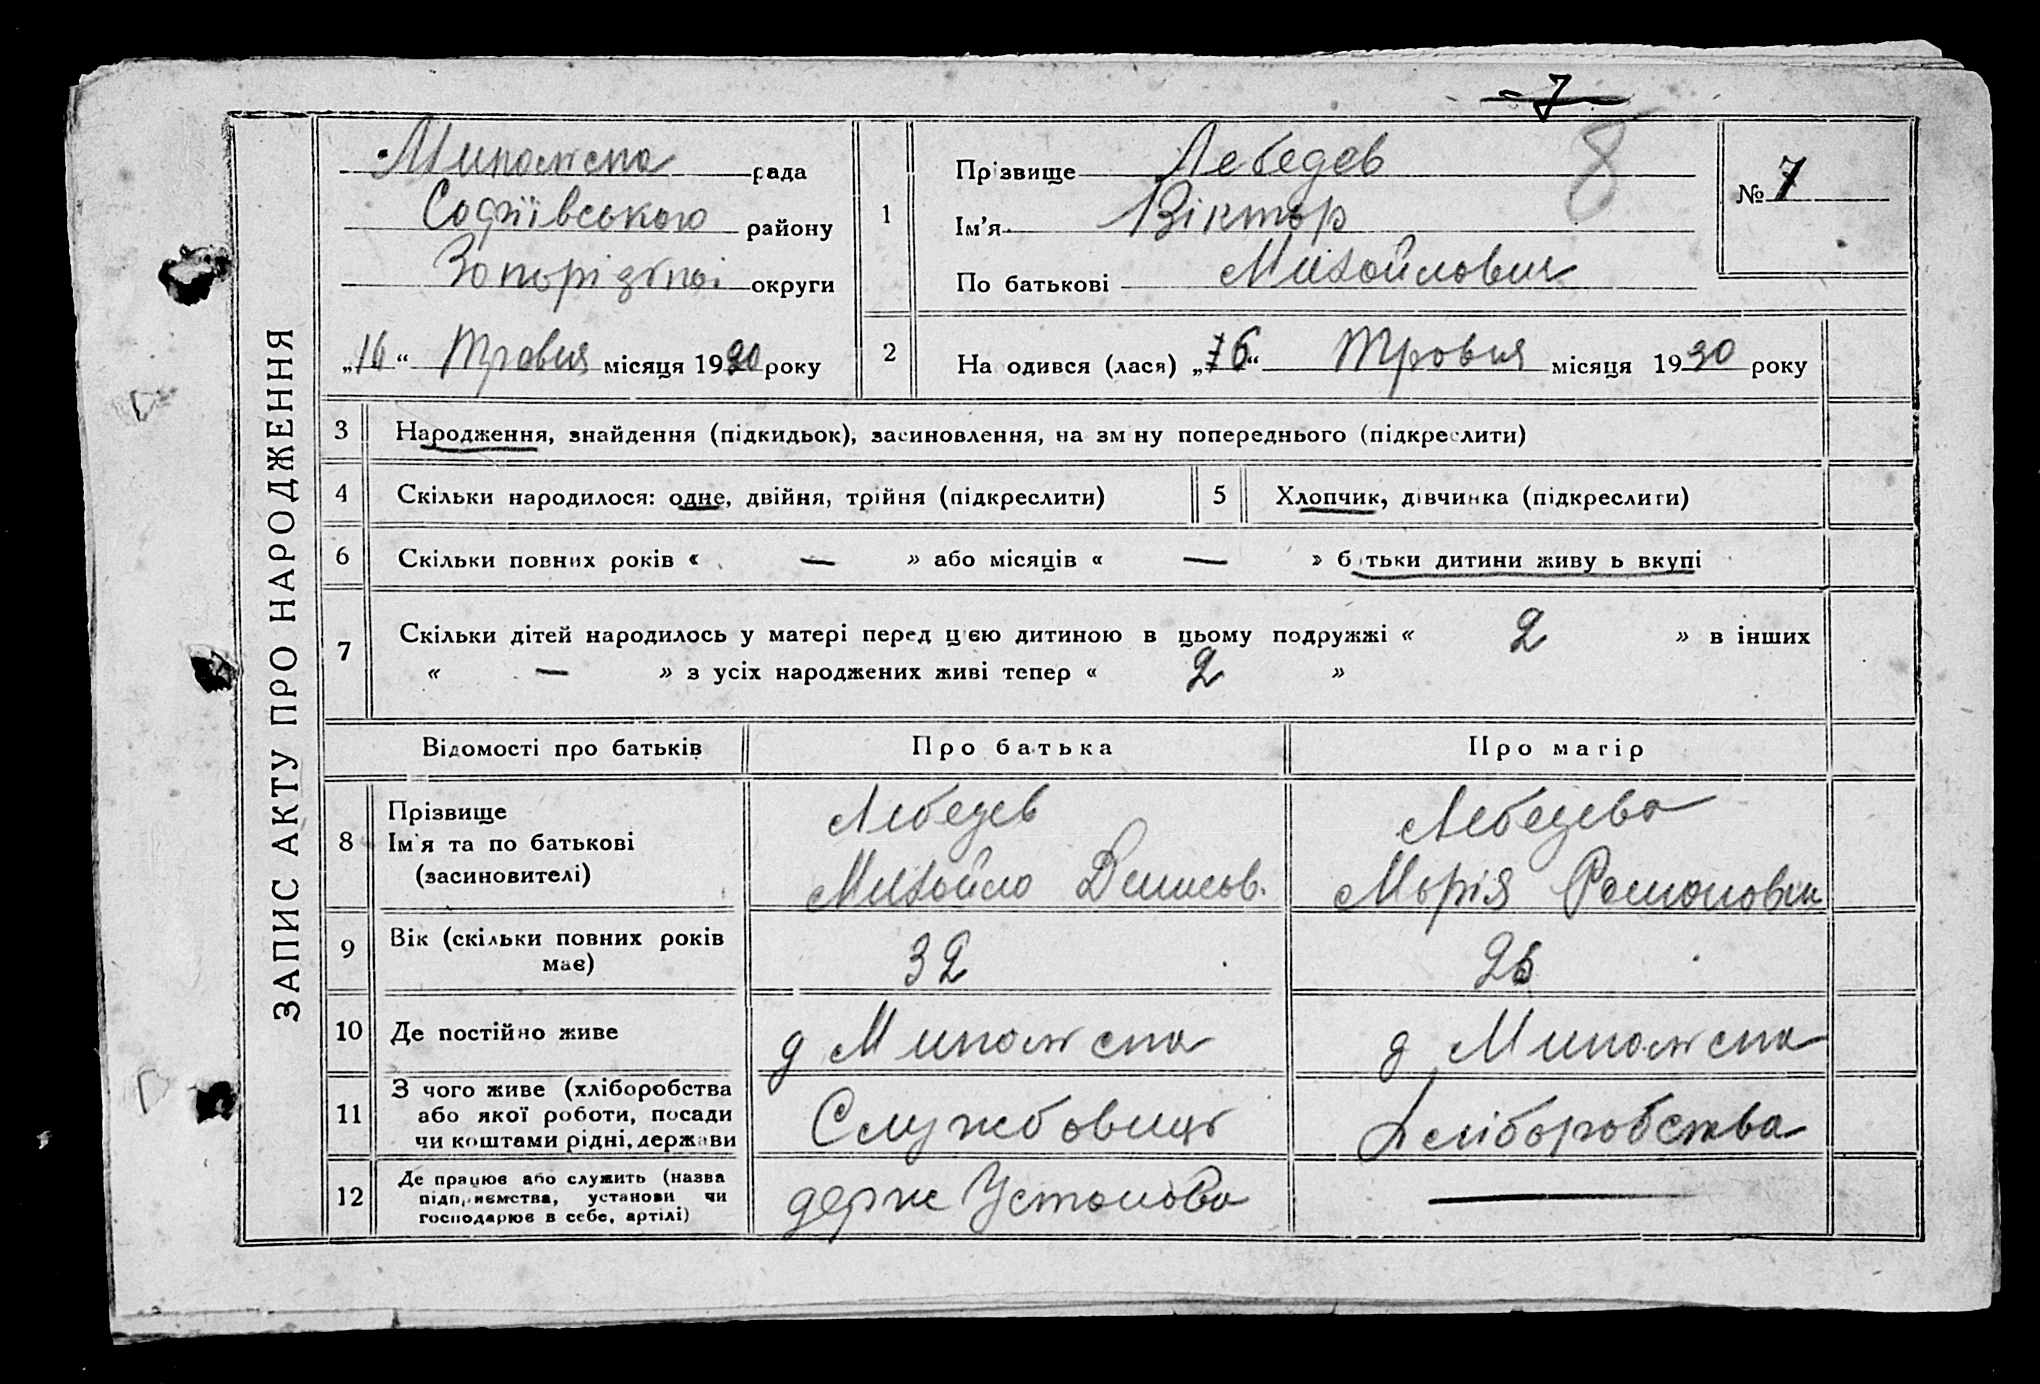 7
ЗАПИС АКТУ ПРО НАРОДЖЕННЯ
рада
Софіївського району
округи
„16“ Травня місяця 1930 року
1
Прізвище Лебедев
Ім'я Віктор
По батькові Михайлович
8
№ 7
2
На одився (лася) „16“ Травня місяця 1930 року
3 Народження, знайдення (підкидьок), засиновлення, на зм ну попереднього (підкреслити)
4 Скільки народилося: одне, двійня, трійня (підкреслити)
5 Хлопчик, дівчинка (підкреслити)
6 Скільки повних років « — » або місяців « — » б тьки дитини живу ь вкупі
7 Скільки дітей народилось у матері перед цією дитиною в цьому подружжі « 2 » в інших
« — » з усіх народжених живі тепер « 2 »
Відомості про батьків Про батька Про матір
8 Прізвище
Ім'я та по батькові
(засиновителі)
Лебедев
Михайло Денисов.
Лебедева
Марія Романовна
9 Вік (скільки повних років
має)
32
26
10 Де постійно живе
11 З чого живе (хліборобства
або якої роботи, посади
чи коштами рідні, держави
Службовець
Хліборобства
12 Де працює або служить (назва
підприємства, установи чи
господарює в себе, артілі)
держ Установа
—